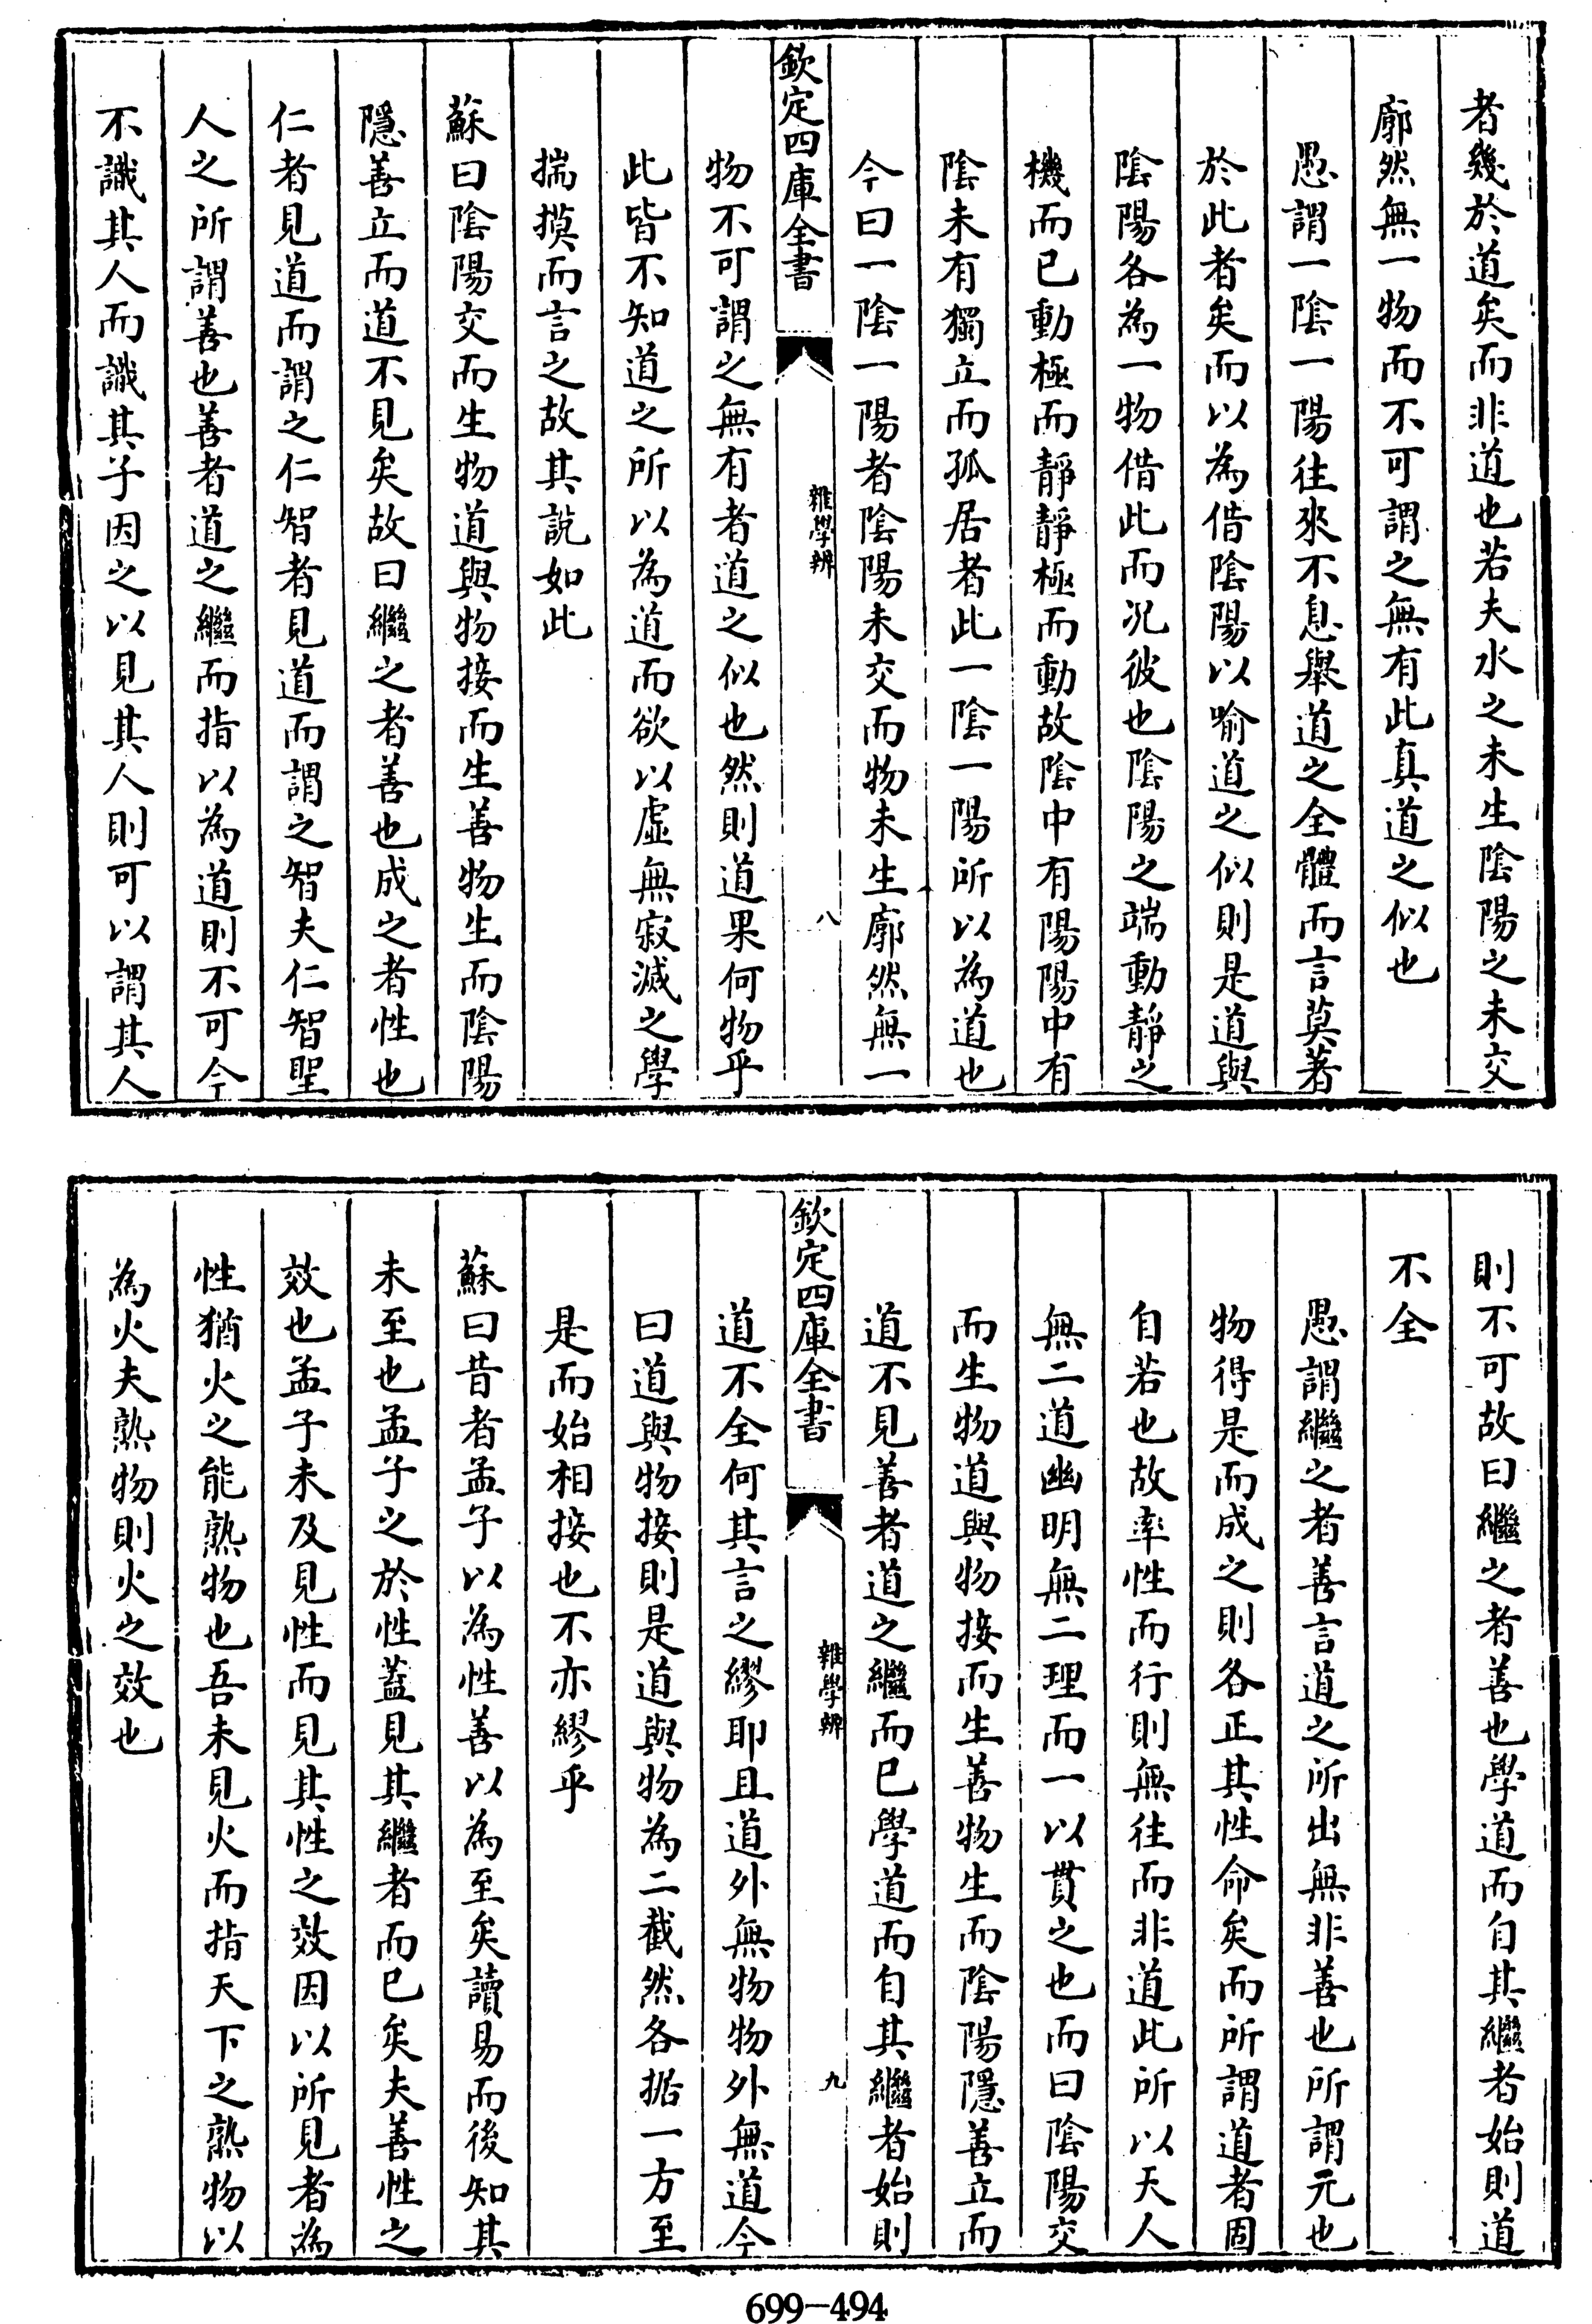 者幾於道矣而非道也若夫水之未生陰陽之未交
廓然無一物而不可謂之無有此真道之似也
愚謂一陰一陽往來不息舉道之全體而言莫著
於此者矣而以為借陰陽以喻道之似則是道與
陰陽各為一物借此而况彼也陰陽之端動靜之
機而已動極而靜靜極而動故陰中有陽陽中有
陰未有獨立而孤居者此一陰一陽所以為道也
今曰一陰一陽者陰陽未交而物未生廓然無一
欽定四庫全書
雜學辨
八
物不可謂之無有者道之似也然則道果何物乎
此皆不知道之所以為道而欲以虛無寂滅之學
揣摸而言之故其說如此
蘇曰陰陽交而生物道與物接而生善物生而陰陽
隱善立而道不見矣故曰繼之者善也成之者性也
仁者見道而謂之仁智者見道而謂之智夫仁智聖
人之所謂善也善者道之繼而指以為道則不可今
不識其人而識其子因之以見其人則可以謂其人
則不可故曰繼之者善也學道而自其繼者始則道
不全
愚謂繼之者善言道之所出無非善也所謂元也
物得是而成之則各正其性命矣而所謂道者固
自若也故率性而行則無往而非道此所以天人
無二道幽明無二理而一以貫之也而曰陰陽交
而生物道與物接而生善物生而陰陽隱善立而
道不見善者道之繼而已學道而自其繼者始則
欽定四庫全書
雜學辨
九
道不全何其言之繆耶且道外無物物外無道今
曰道與物接則是道與物為二截然各据一方至
是而始相接也不亦繆乎
蘇曰昔者孟子以為性善以為至矣讀易而後知其
未至也孟子之於性蓋見其繼者而已矣夫善性之
效也孟子未及見性而見其性之效因以所見者為
性猶火之能熟物也吾未見火而指天下之熟物以
為火夫熟物則火之效也
699-494